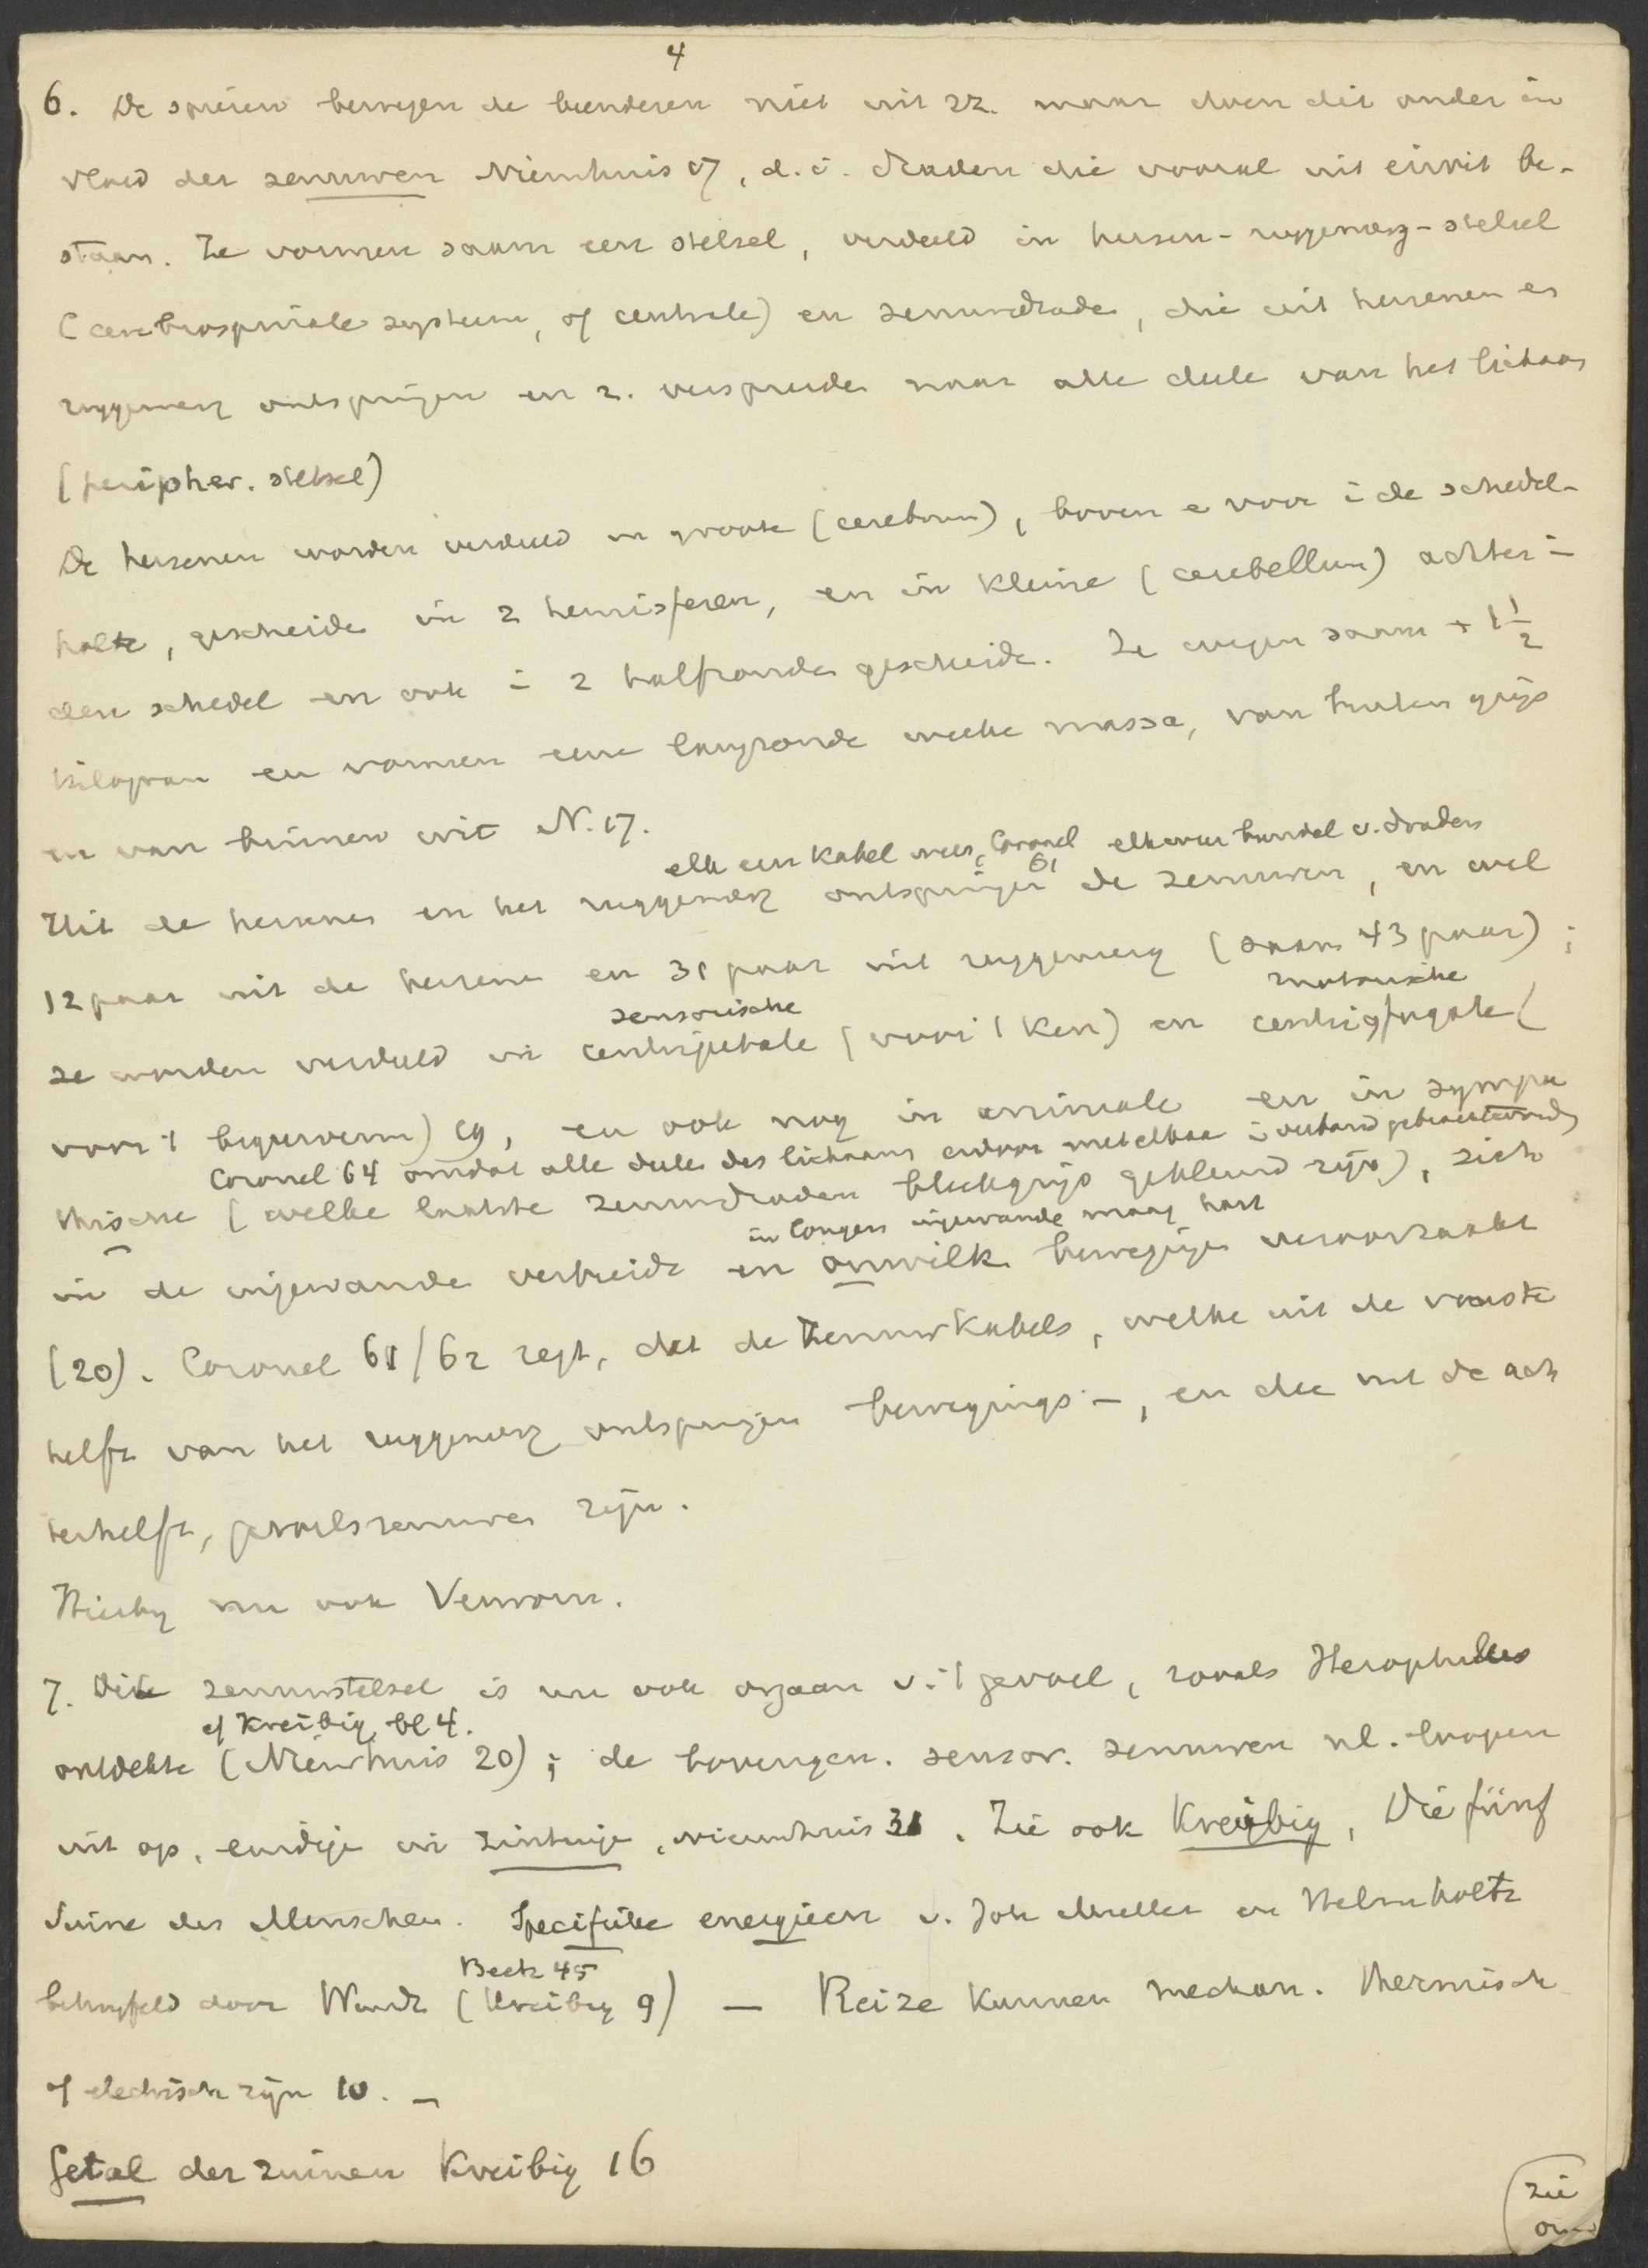 4
6. De spieren bewegen de beenderen niet uit zz. maar doen dit onder in
vloed der zenuwen Nieuhuis 17, d. i. draden die vooral uit eiwit be-
staan. Ze vormen saam een stelsel, verdeeld in hersen-ruggemerg-stelsel
(cerebrospinale systeem, of centrale) en zenuwdrade, die uit hersenen en
ruggemerg ontspringen en z. verspreide naar alle deele van het lichaam
(peripher. stelsel)
De hersenen worden verdeeld in groote (cerebrum), boven e voor i de schedel-
holte, gescheide in 2 hemisferen, en in kleine (cerebellum) achter i
den schedel en ook i 2 halfronde gescheide. Ze wegen saam + 1 1/2
kilogram en vormen eene langronde weeke massa, van buiten grijs
en van binnen wit N. 17.
elk een kabel Coronel 61 elk een bundel v. draden
Uit de hersenen en het ruggemerg ontspringen de zenuwen, en wel
12 paar uit de hersene en 31 paar uit ruggemerg (saam 43 paar);
sensorische motorische
ze worden verdeeld in centripetale (voor 't ken) en centrifugale (
voor 't begeerverm) 19, en ook nog in animale en in sympa
Coronel 64 omdat alle deele des lichaams erdoor met elkaa i verband gebracht worde
thische (welke laatste zenuwdraden bleekgrijs gekleurd zijn), zich
in longen ingewande maag hart
in de ingewande verbreide en onwilk. bewegingen veroorzaakt
(20). Coronel 61/62 zegt, dat de zenuwkabels, welke uit de voorste
helft van het ruggemerg ontspringen bewegings-, en die uit de ach
terhelft, gevoelszenuwen zijn.
Hierby nu ook Verworn.
7. Dit zenuwstelsel is nu ook orgaan v. 't gevoel, zooals Herophilus
cf Kreibig bl 4.
ontdekte (Nieuhuis 20); de bovengen. sensor. zenuwen nl. loopen
uit op, eindige in zintuige, Nieuwhuis 31. Zie ook Kreibig, Die fünf
Sinne des Menschen. Specifieke energieen v. Joh Muller en Helmholtz
Beck 45
betwyfeld door Wundt (Kreibig 9) — Reize kunnen mechan. thermisch
of electrisch zijn 10. —
Getal der zinnen Kreibig 16
zie
om